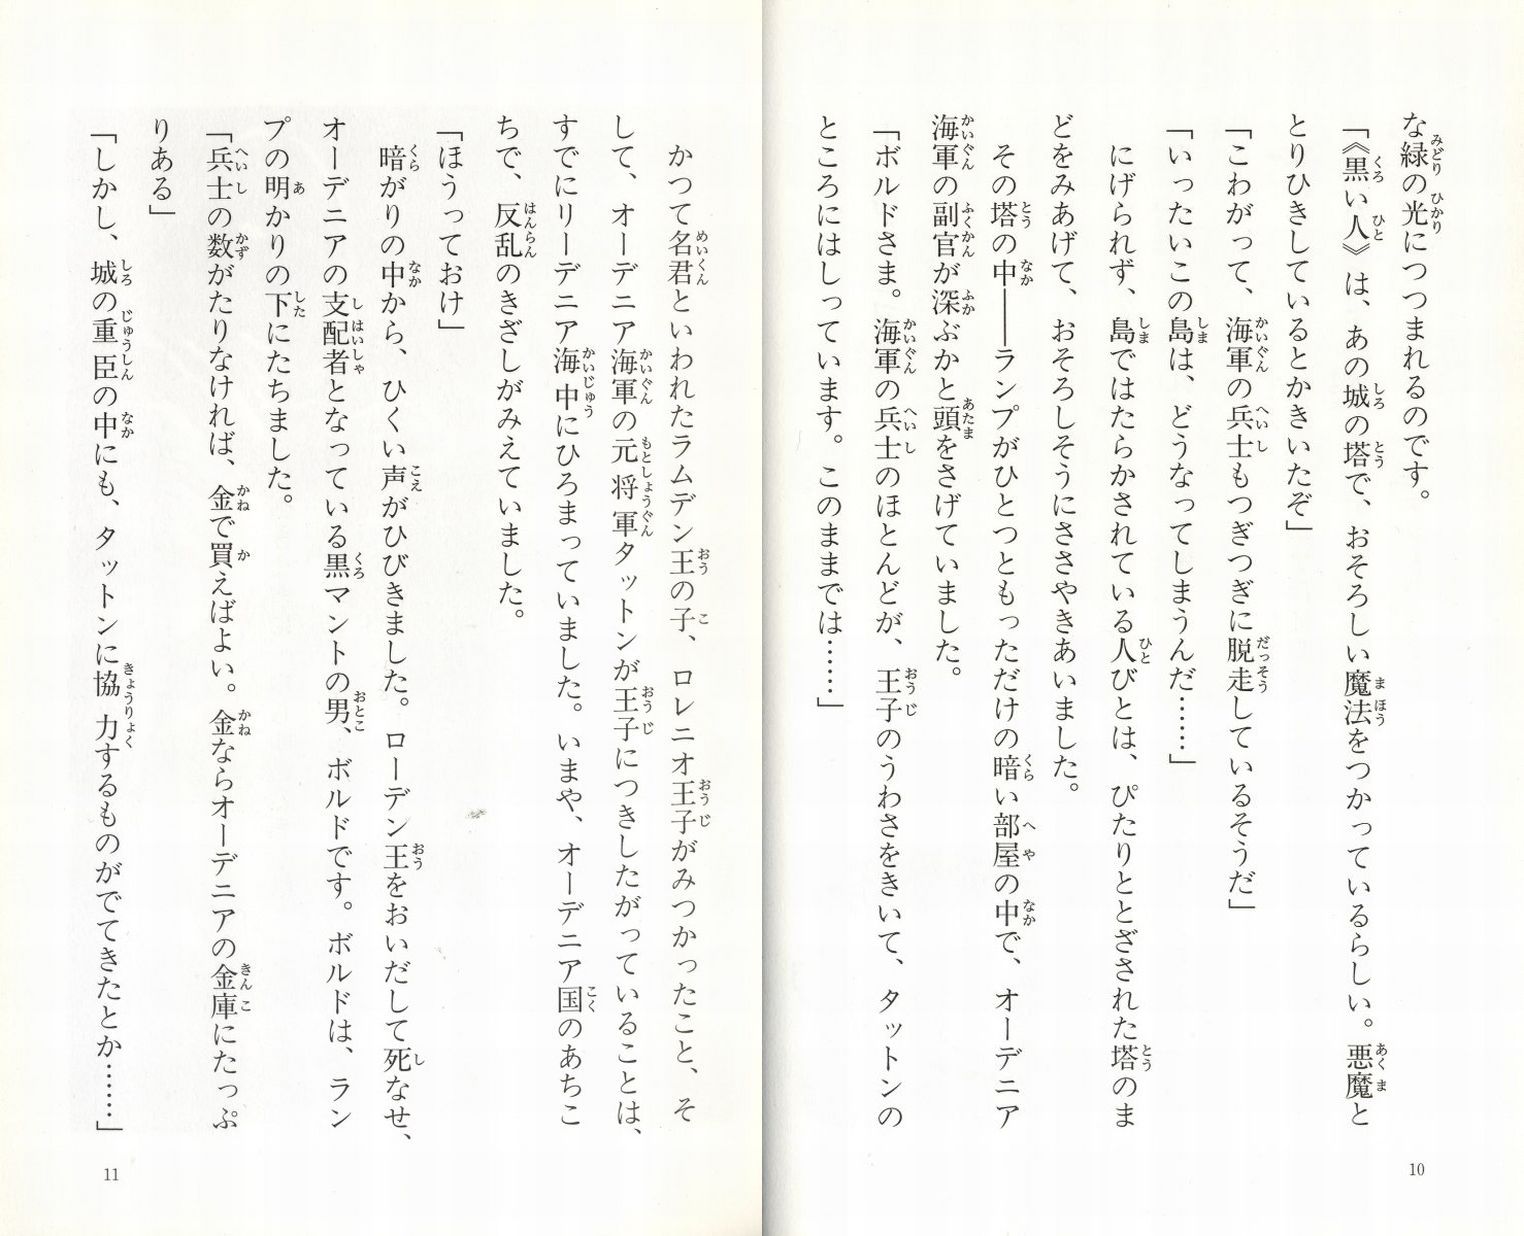 な緑の光につつまれるのです。
「《黒い人》は、あの城の塔で、おそろしい魔法をつかっているらしい。悪魔と
とりひきしているとかきいたぞ」
「こわがって、海軍の兵士もつぎつぎに脱走しているそうだ」
「いったいこの島は、どうなってしまうんだ……」
にげられず、島ではたらかされている人びとは、ぴたりととざされた塔のま
どをみあげて、おそろしそうにささやきあいました。
その塔の中――ランプがひとつともっただけの暗い部屋の中で、オーデニア
海軍の副官が深ぶかと頭をさげていました。
「ボルドさま。海軍の兵士のほとんどが、王子のうわさをきいて、タットンの
ところにはしっています。このままでは……」
10
かつて名君といわれたラムデン王の子、ロレニオ王子がみつかったこと、そ
して、オーデニア海軍の元将軍タットンが王子につきしたがっていることは、
すでにリーデニア海中にひろまっていました。いまや、オーデニア国のあちこ
ちで、反乱のきざしがみえていました。
「ほうっておけ」
暗がりの中から、ひくい声がひびきました。ローデン王をおいだして死なせ、
オーデニアの支配者となっている黒マントの男、ボルドです。ボルドは、ラン
プの明かりの下にたちました。
「兵士の数がたりなければ、金で買えばよい。金ならオーデニアの金庫にたっぷ
りある」
「しかし、城の重臣の中にも、タットンに協力するものがでてきたとか……」
11